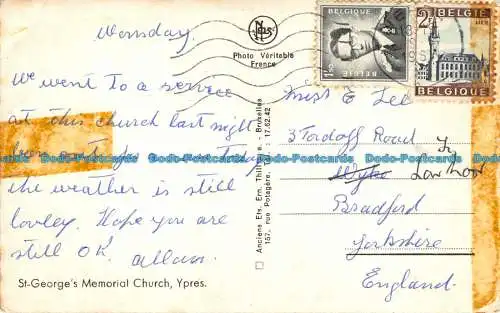 Wensday.
We went to a service
at this church last night
the weather is still
lovley. Hope you are
still OK. Allan.
St-George's Memorial Church, Ypres.
Photo Véritable
France
Anciens Ets. Ern. Thill, s. a. - Bruxelles
157, rue Potagère, Tél.: 17.62.42
BELGIQUE
1F50
BELGIE
LIER
2F
BELGIQUE
Miss E Lee
3 Tordoff Road
Wyke Low Moor
Bradford
Yorkshire
England.
Dodo-Postcards Dodo-Postcards Dodo-Postcards Dodo-Postcards Dodo-Postcards